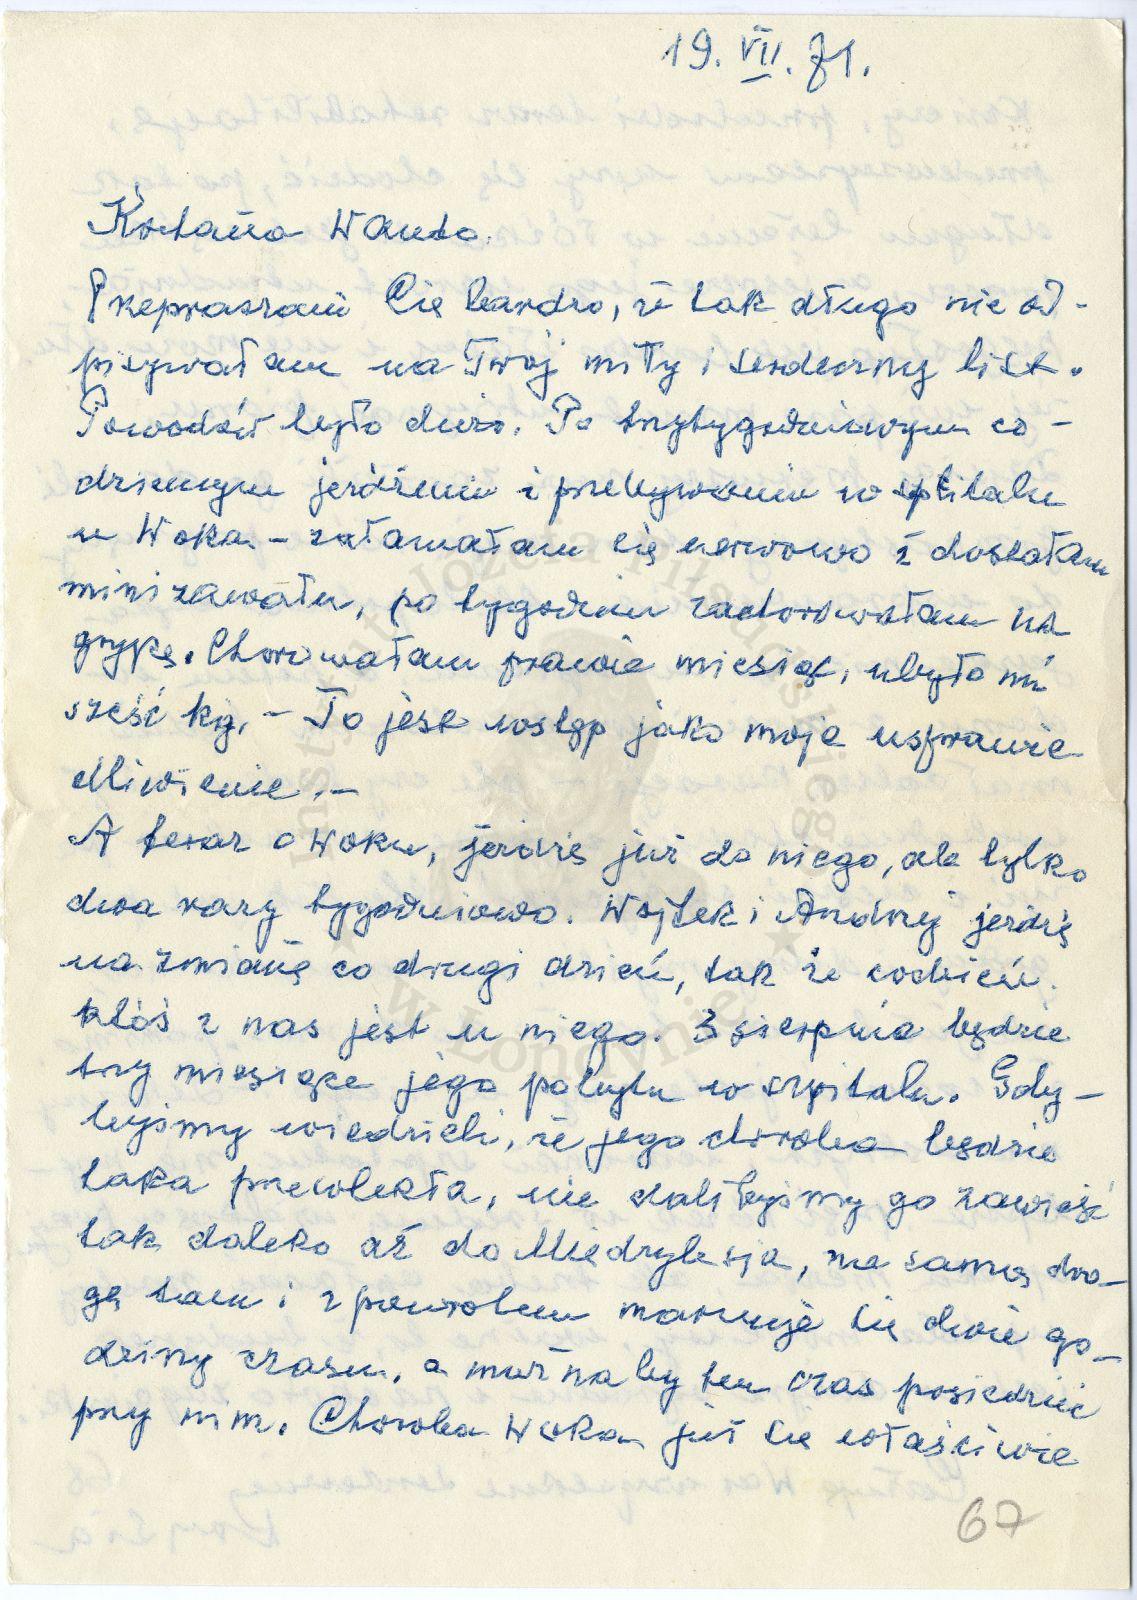 19. VII. 71.
Kochana Wando.
Przepraszam Cię bardzo, że tak długo nie od-
pisywałam na Twój miły i serdeczny list.
Powodów było dużo. Po trzytygodniowym co-
dziennym jeżdżeniu i przebywaniu w szpitalu
u Woka - załamałam się nerwowo i dostałam
mini zawału, po tygodniu zachorowałam na
grypę. Chorowałam prawie miesiąc, ubyło mi
sześć kg. - To jest wstęp jako moje usprawie
dliwienie. -
A teraz o Woku, jeżdżę już do niego, ale tylko
dwa razy tygodniowo. Wojtek i Andrzej jeżdżą
na zmianę co drugi dzień, tak że codzień
ktoś z nas jest u niego. 3 sierpnia będzie
trzy miesiące jego pobytu w szpitalu. Gdy-
byśmy wiedzieli, że jego choroba będzie
taka przewlekła, nie dalibyśmy go zawieść
tak daleko aż do Miedzylesia, na samą dro-
gę tam i z powrotem marnuje się dwie go-
dziny czasu, a można by ten czas posiedzieć
przy nim. Choroba Woka już się właściwie
67
Instytut Józefa Piłsudskiego
w Londynie